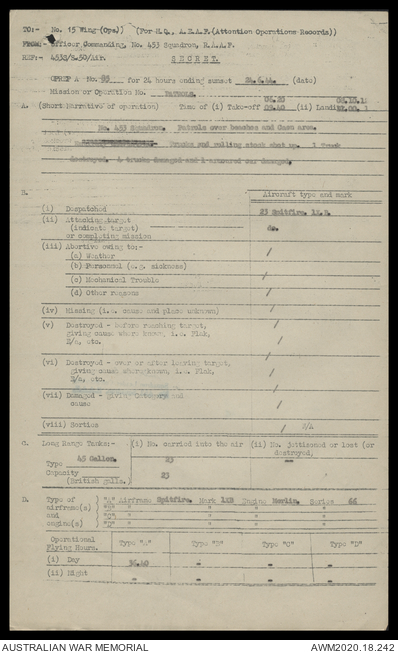 TO:- No. 15 Wing (Ops)) (For H.Q., A.E.A.F. (Attention Operations Records))
FROM:- Officer Commanding, No. 453 Squadron, R.A.A.F.
REF:- 453S/S.50/Air. S E C R E T.
No. 93 for 24 hours ending sunset 24.6.44. (date)
Mission or Operation No. Patrols.
A. (Short Narrative of operation) Time of (i) Take-off (ii) Landing
No. 453 Squadron. Patrols over beaches and Caen area.
Trucks and rolling stock shot up. 1 Truck
destroyed. 4 trucks damaged and 1 armoured car damaged.
B. Aircraft type and mark
(i) Despatched 23 Spitfire IX.B.
(ii) Attacking target
(indicate target)
or completing mission do.
(iii) Abortive owing to:-
(a) Weather /
(b) Personnel (e.g. sickness) /
(c) Mechanical Trouble /
(d) Other reasons /
(iv) Missing (i.e. cause and place unknown) /
(v) Destroyed - Before reaching target,
giving cause where known, i.e. Flak,
E/a, etc. /
(vi) Destroyed - over or after leaving target,
giving cause where known, i.e. Flak,
E/a, etc. /
(vii) Damaged - giving Category and
cause /
(viii) Sorties
C. Long Range Tanks:- (i) No. carried into the air (ii) No. jettisoned or lost (or
destroyed)
Type 45 Gallon. 23 -
Capacity
(British galls.) 23
D. Type of "A" Airframe Spitfire. Mark IXB Engine Merlin. Series 66
airframe(s) "B" " " " "
and "C" " " " "
engine(s) "D" " " " "
Operational
Flying Hours. Type "A" Type "B" Type "C" Type "D"
(i) Day 36.40 - - -
(ii) Night - - - -
AUSTRALIAN WAR MEMORIAL AWM2020.18.242